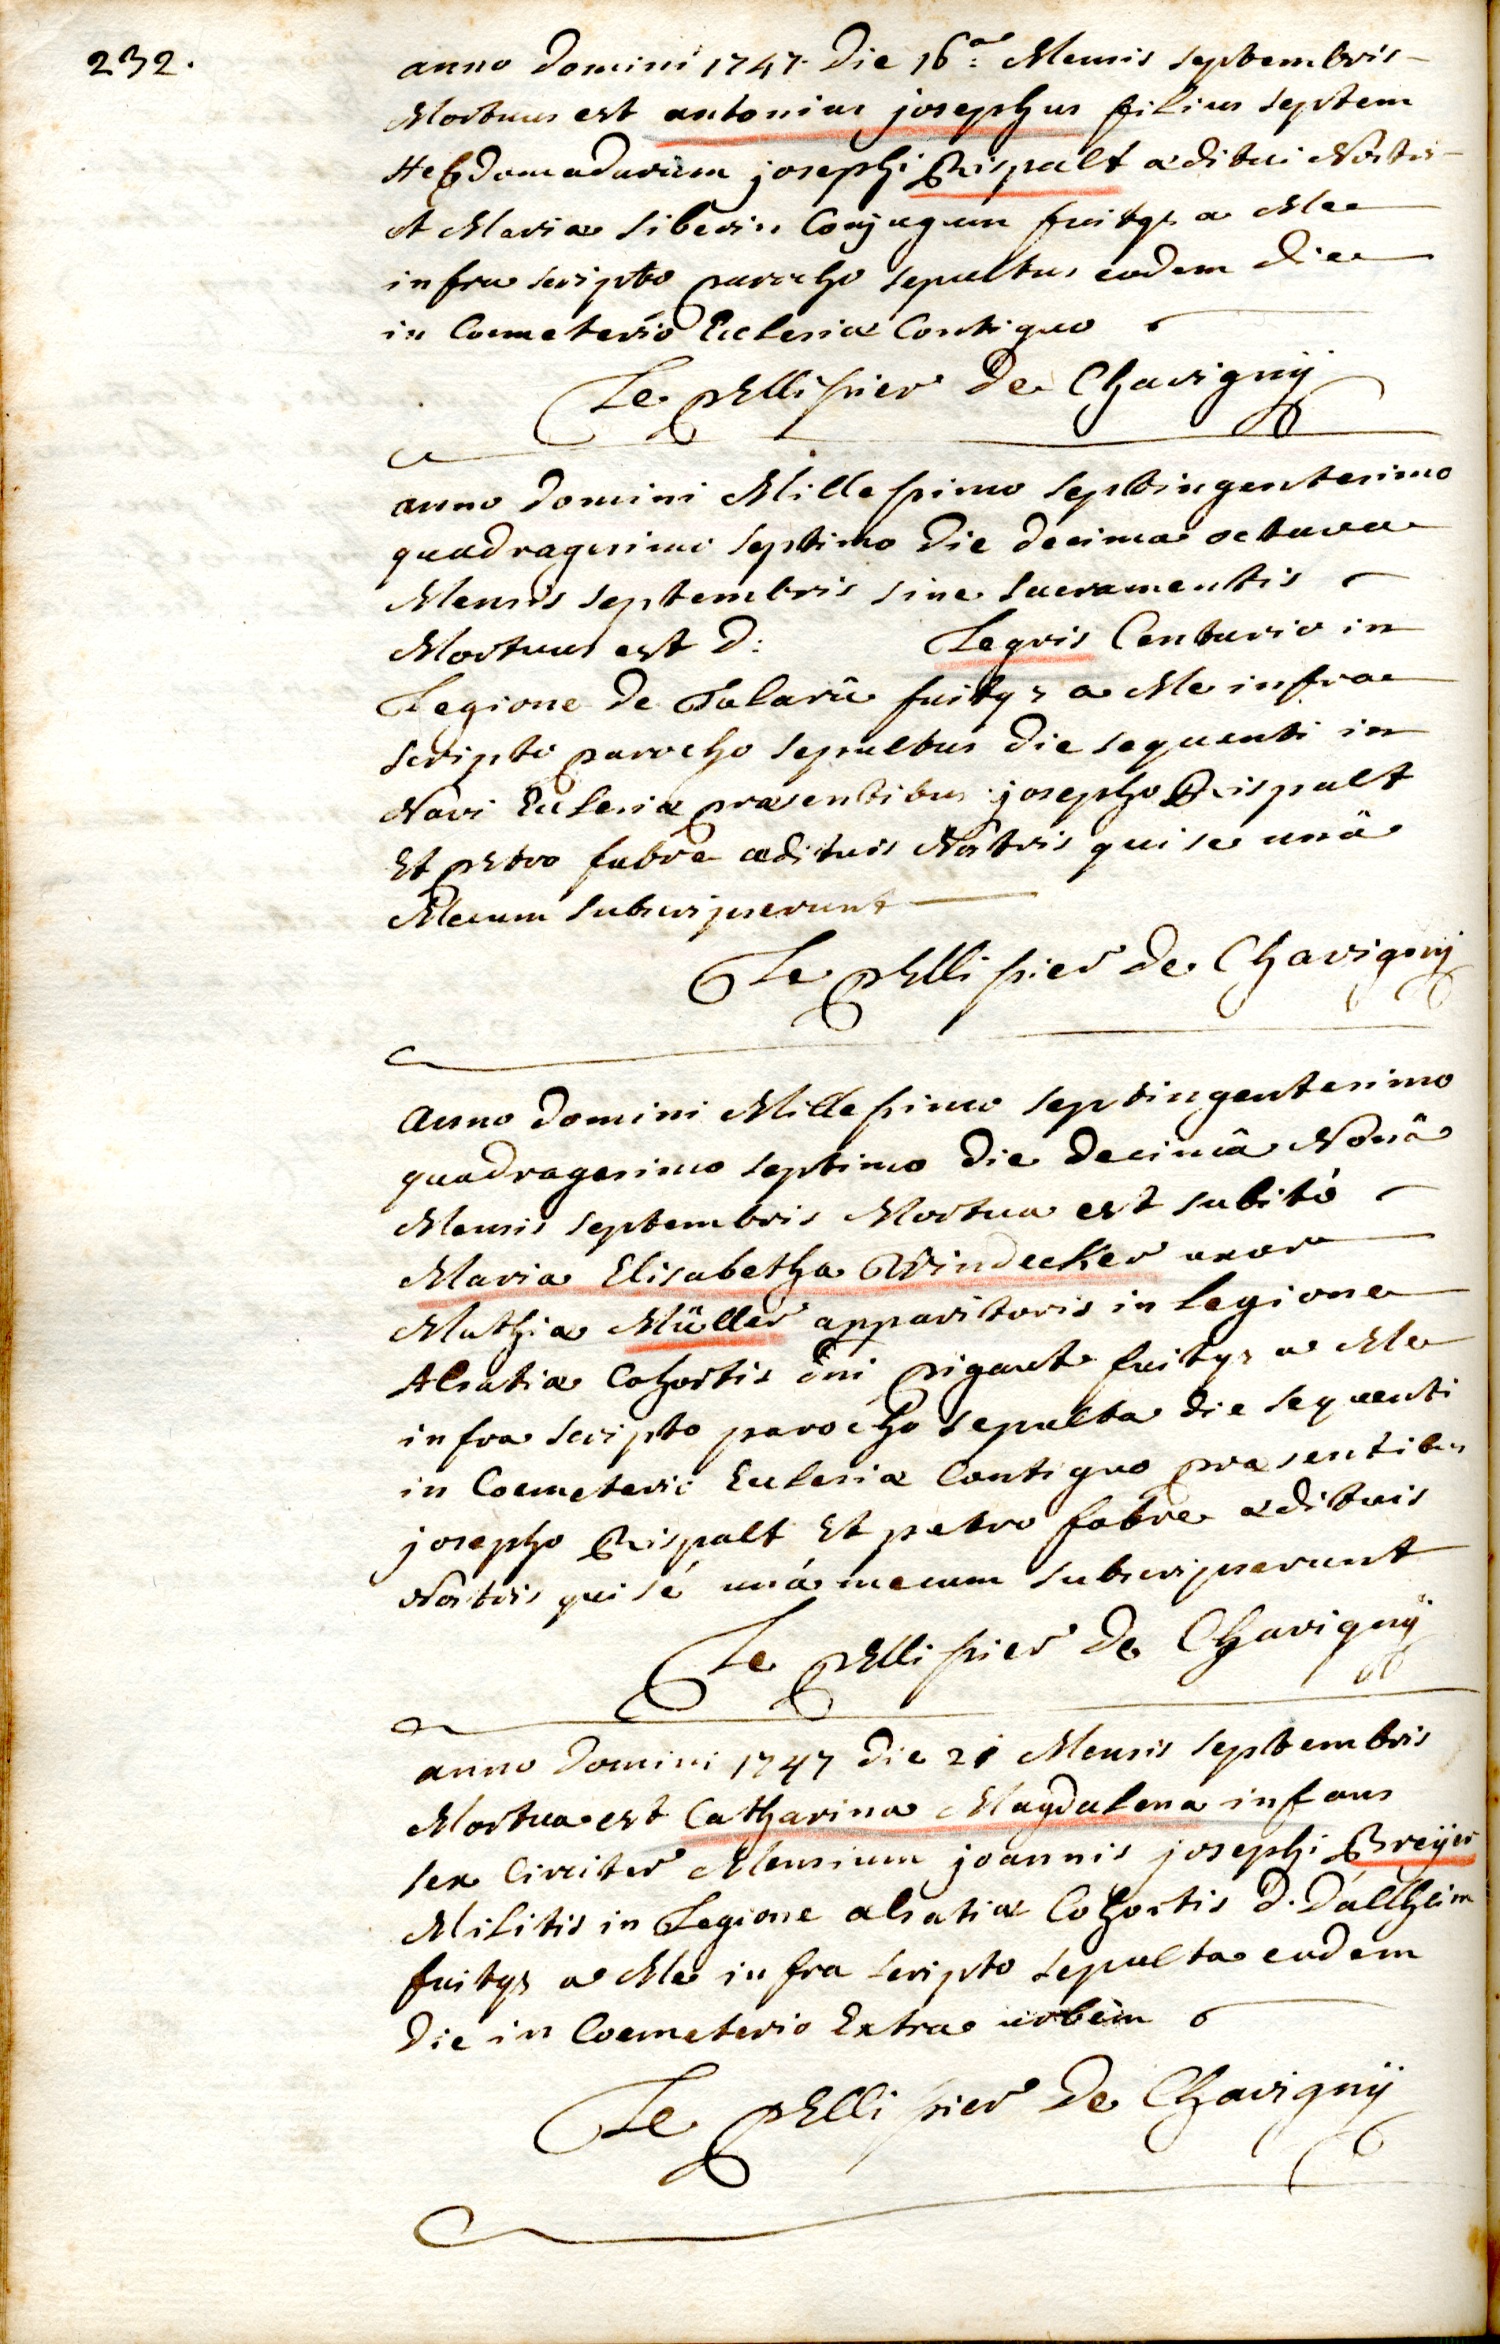 232.
anno Domini 1747. Die 16a: Mensis septembris
Mortuus est antonius josephus filius septem
Hebdomadarum josephi Rispalt æditui Nostri
et Mariæ Siberin Conjugum fuitq; a Me
infra scripto parocho sepultus eadem die
in Coemeterio Ecclesiæ Contiguo
Le pEllissier De Chavignÿ
anno Domini Millessimo septingentesimo
quadragesimo septimo Die decima octava
Mensis septembris sine sacramentis
Mortuus est D: Legris Centurio in
Legione de Talarü fuitq; a Me infra
scripto parocho sepultus Die sequenti in
Navi Ecclesiæ præsentibus josepho Rispalt
Et pEtro fabre ædituis Nostris qui se unâ
Mecum subscripserunt
Le pEllissier de Chavignÿ
Anno Domini Millessimo septingentesimo
quadragesimo septimo Die Decimâ Nonâ
Mensis septembris Mortua est subitò
Maria Elisabetha Windecker uxor
Mathiæ Müller apparitoris in legione
Alsatiæ Cohortis dni pigant fuitq; a Me
infra scripto parocho sepulta die sequenti
in Coemeterio Ecclesiæ Contiguo præsentibus
josepho Rispalt Et petro fabre ædituis
Nostris qui sé unâ mecum subscripserunt
Le pEllissier De Chavignÿ
anno Domini 1747 die 21 Mensis septembris
Mortua est Catharina Magdalena infans
sex Circiter Mensium joannis josephi Breÿer
Militis in Legione alsatiæ Cohortis D. Dallheim
fuitq; a Me infra scripto sepulta eadem
Die in Coemeterio Extra urbem
Le pEllissier De Chavignÿ